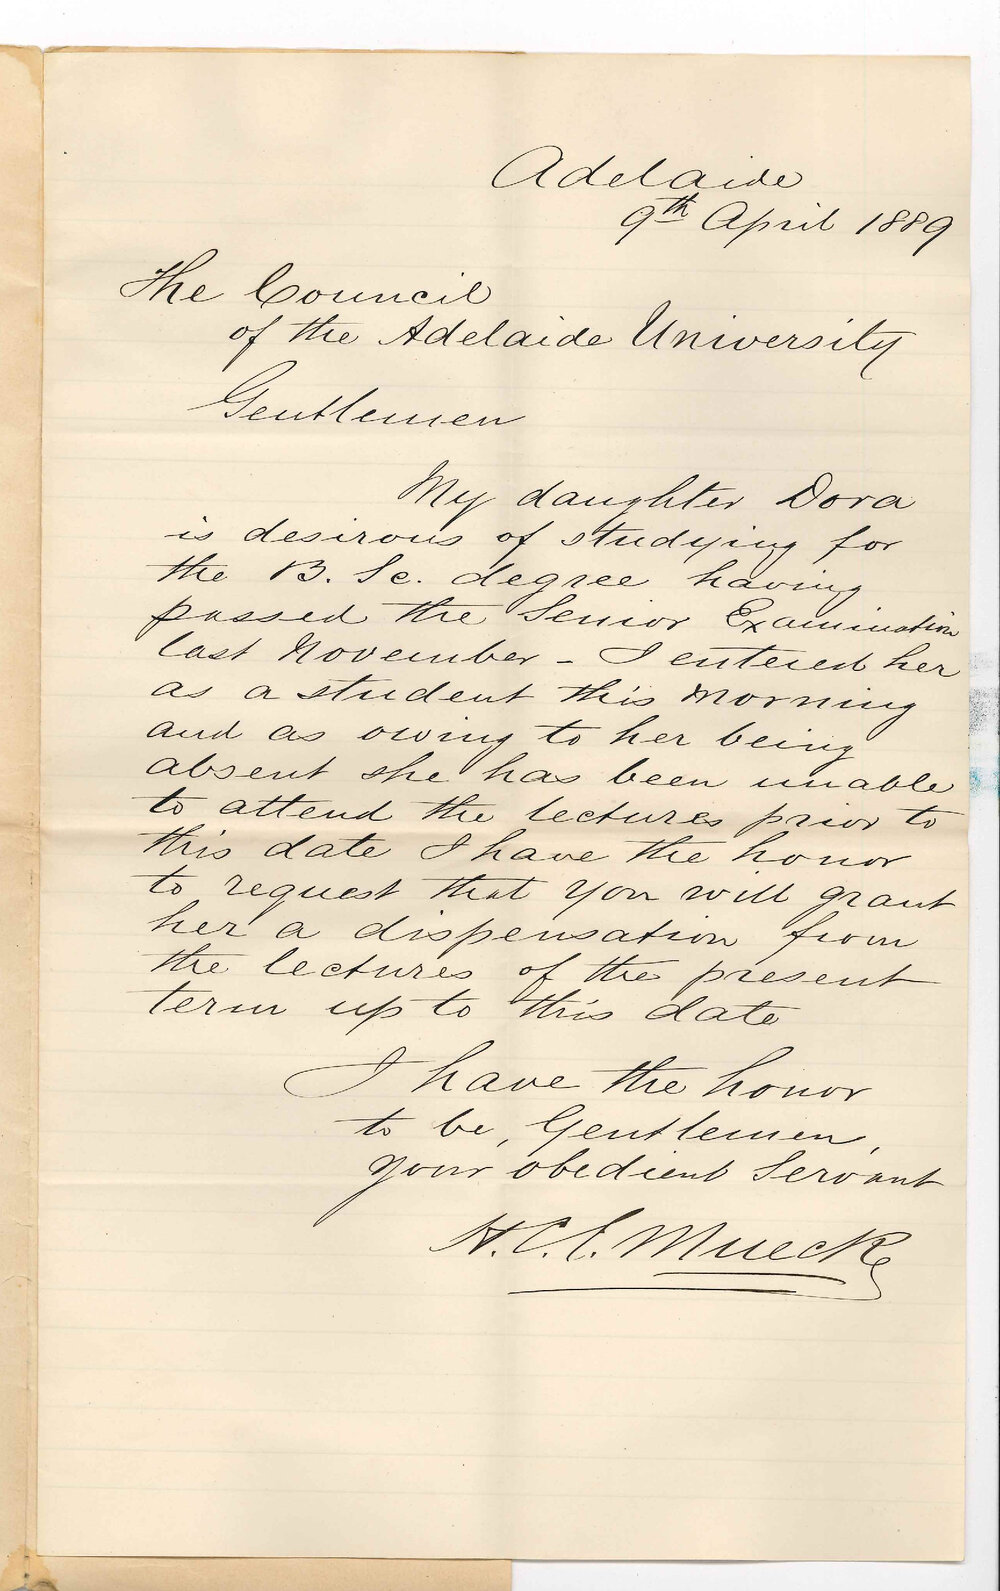 Adelaide
9th April 1889
The Council
of the Adelaide University
Gentlemen
My daughter Dora
is desirous of studying for
the B. Sc. degree having
passed the Senior Examination
last November - I entered her
as a student this morning
and as owing to her being
absent she has been unable
to attend the lectures prior to
this date I have the honor
to request that you will grant
her a dispensation from
the lectures of the present
term up to this date
I have the honor
to be, Gentlemen,
your obedient Servant
H. C. E. Muecke